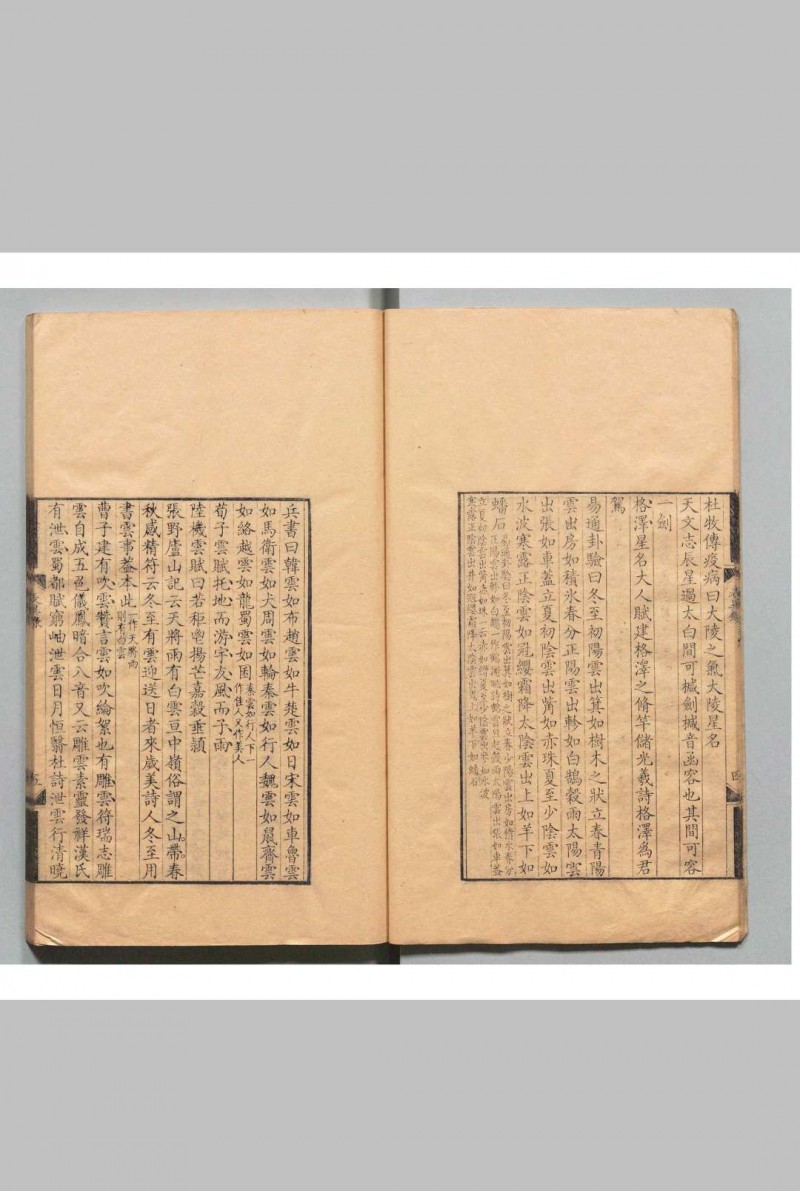 杜牧傳疫病曰大陵之氣大陵星名
天文志辰星過太白間可椷劍椷音函容也其間可容
一劍
格澤星名大人賦建格澤之脩竿儲光羲詩格澤為君
駕
易通卦驗曰冬至初陽雲出箕如樹木之狀立春青陽
雲出房如積氷春分正陽雲出軫如白鵠穀雨太陽雲
出張如車蓋立夏初陰雲出觜如赤珠夏至少陰雲如
水波寒露正陰雲如冠纓霜降太陰雲出上如羊下如
蟠石
兵書曰韓雲如布趙雲如牛楚雲如日宋雲如車魯雲
如馬衛雲如犬周雲如輪秦雲如行人魏雲如鼠齊雲
如絳越雲如龍蜀雲如囷秦雲如行人下一作佳人又作美人
荀子雲賦托地而游宇友風而子雨
陸機雲賦曰若秬鬯揚芒嘉穀垂穎
張野廬山記云天將雨有白雲亘中嶺俗謂之山帶春
秋感精符云冬至有雲迎送日者來歲美詩人冬至用
書雲事葢本此一作天將雨則有白雲
曹子建有吹雲贊言雲如吹綸絮也有雕雲符瑞志雕
雲自成五色儀鳳暗合八音又云雕雲素靈發祥漢氏
有泄雲蜀都賦窮岫泄雲日月恒翳杜詩泄雲行清曉